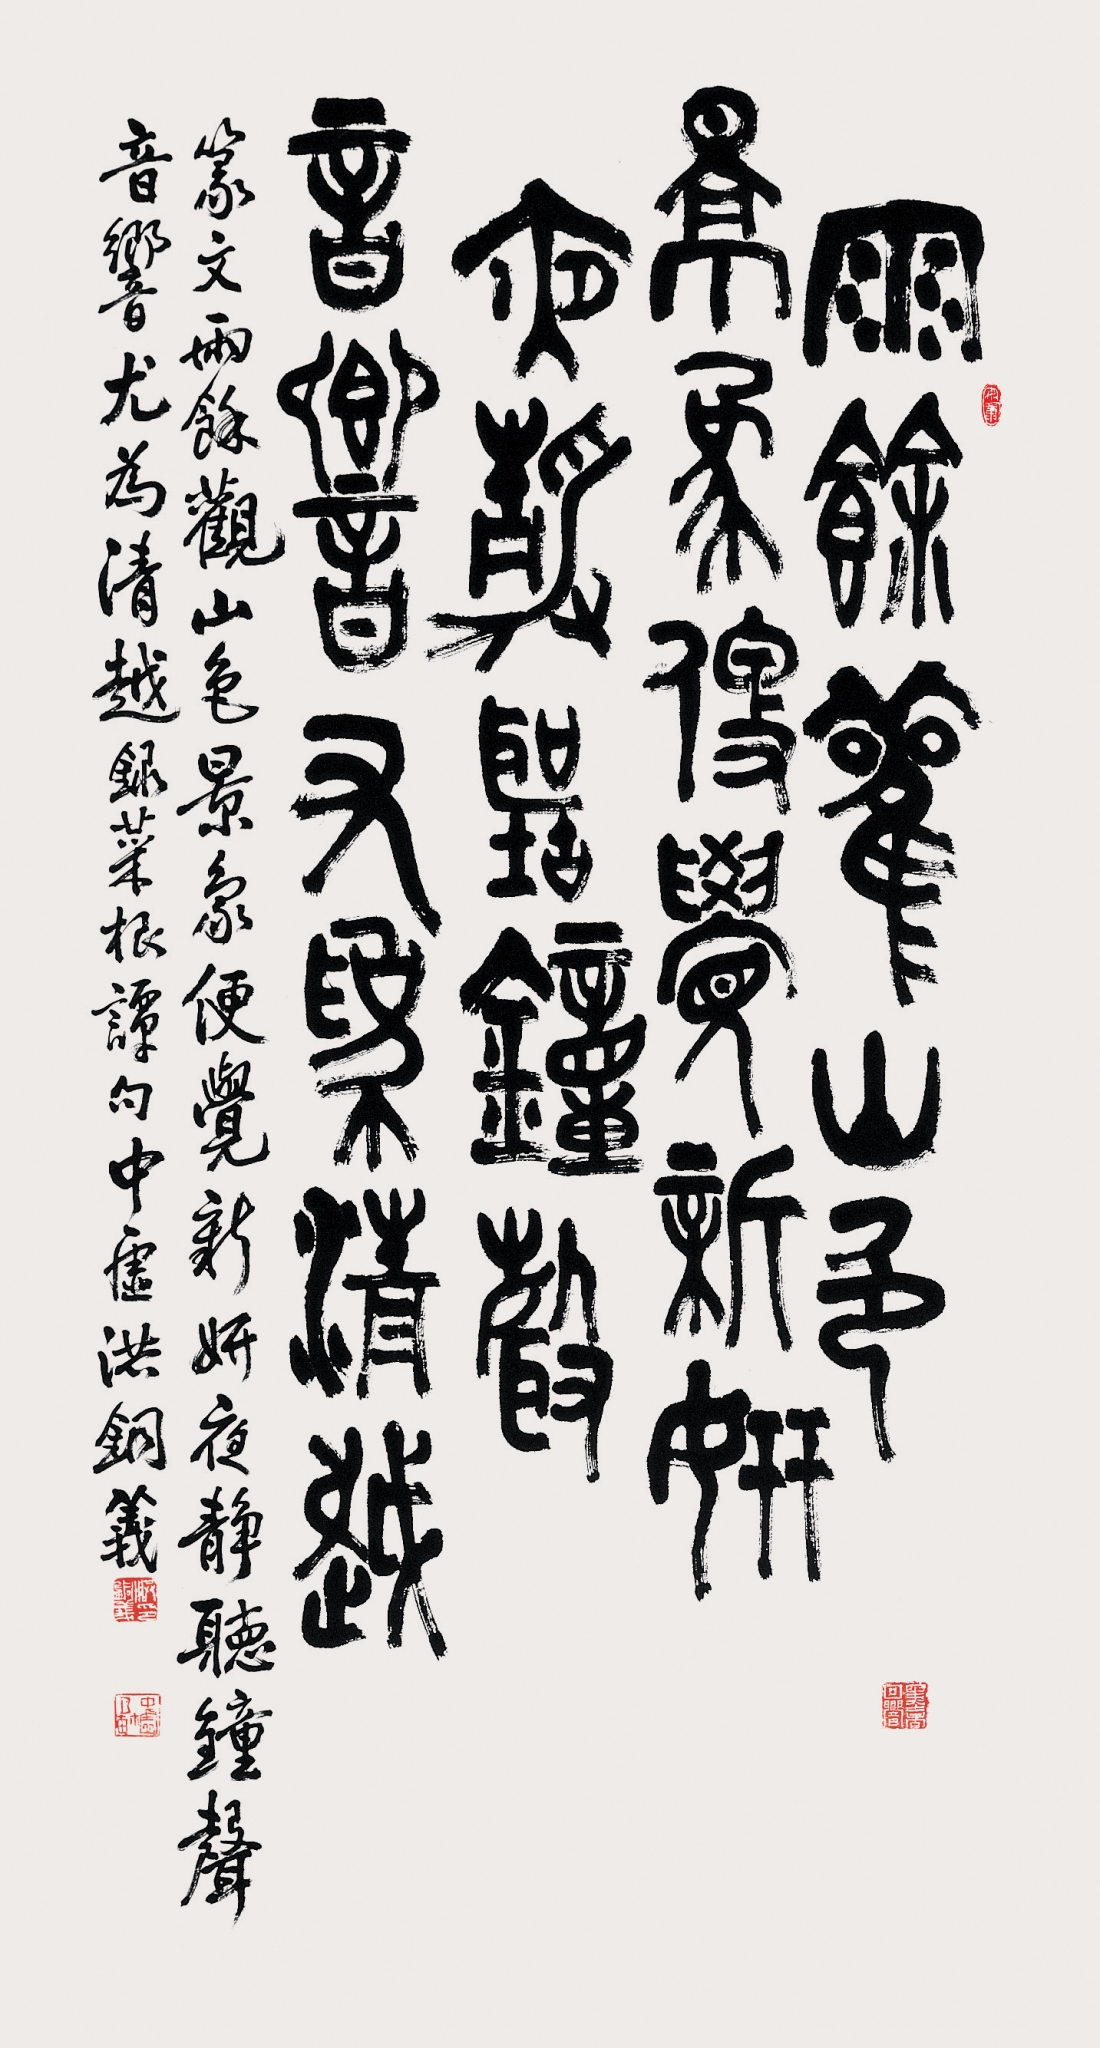 雨餘觀山色
景象便覺新妍
夜靜聽鐘聲
音響尤為清越
篆文雨餘觀山色景象便覺新妍夜靜聽鐘聲
音響尤為清越錄菜根譚句中虛洪銅義